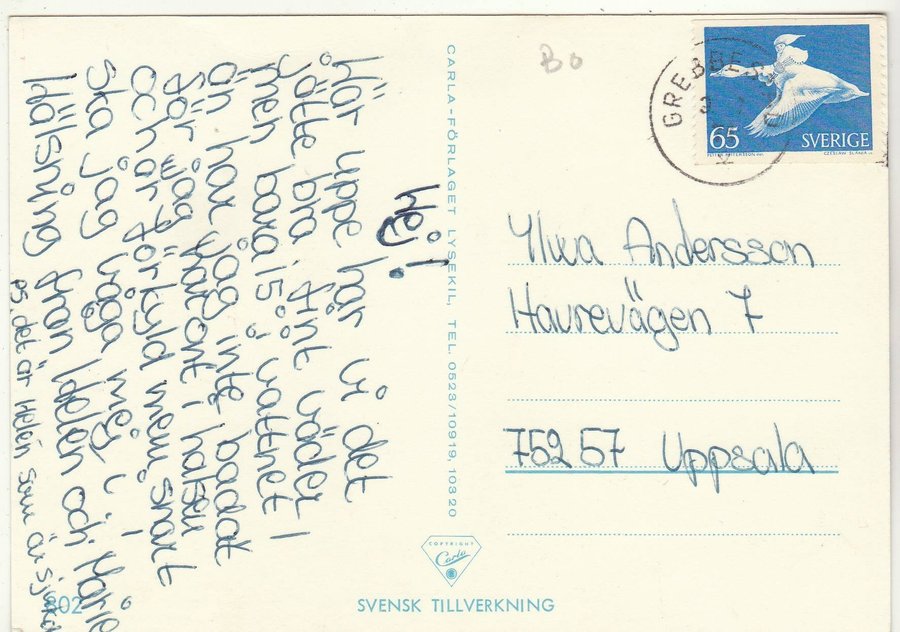 Hej!
Här uppe har vi det
jätte bra, fint väder!
men bara 15° i vattnet
än har jag inte badat
för jag har ont i halsen
och är förkyld men snart
ska jag våga mej i!
Hälsning från Helen och Marie
PS. det är Helen som är sjuk
CARLA-FÖRLAGET LYSEKIL, TEL. 0523/10919, 10320
Bo
GREBBES
65
SVERIGE
CZESLAW SLANIA
Ylwa Andersson
Havrevägen 7
752 57 Uppsala
COPYRIGHT
Carla
802
SVENSK TILLVERKNING